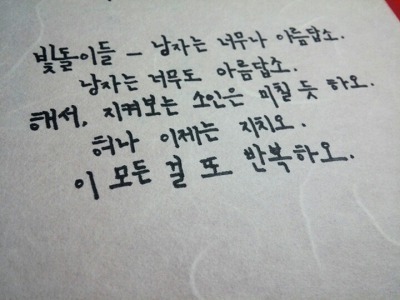 빛돌이들 - 남자는 너무나 아름답소.
남자는 너무도 아름답소.
해서, 지켜보는 소인은 미칠 듯 하오.
허나 이제는 지치오.
이 모든 걸 또 반복하오.